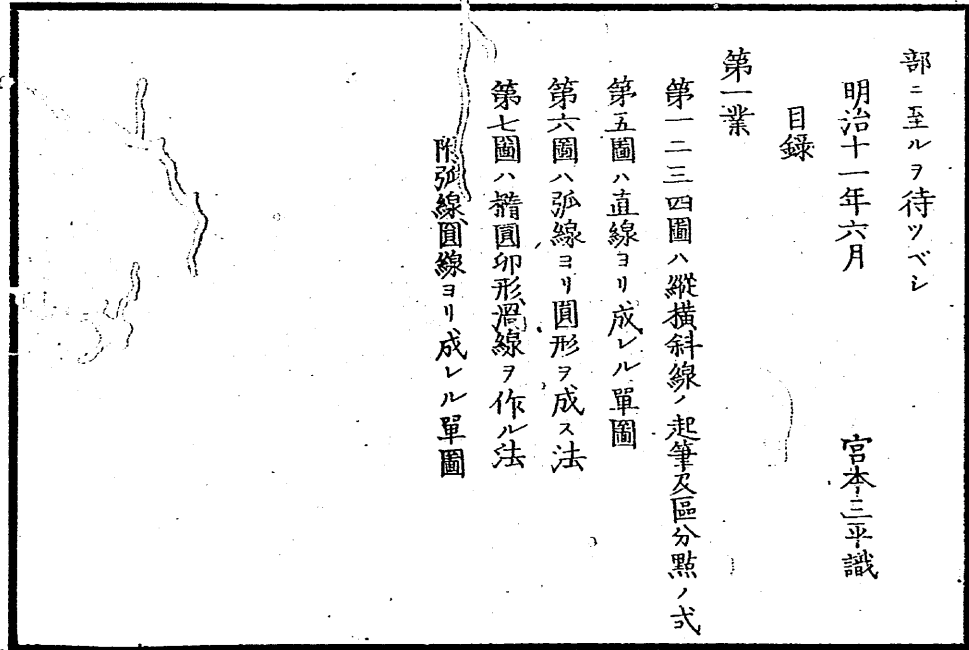 部ニ至ルヲ待ツベシ
明治十一年六月　宮本三平識
目錄
第一業
第一二三四圖ハ縱橫斜線ノ起筆及區分點ノ式
第五圖ハ直線ヨリ成レル單圖
第六圖ハ弧線ヨリ圓形ヲ成ス法
第七圖ハ橢圓卵形渦線ヲ作ル法
附弧線圓線ヨリ成レル單圖